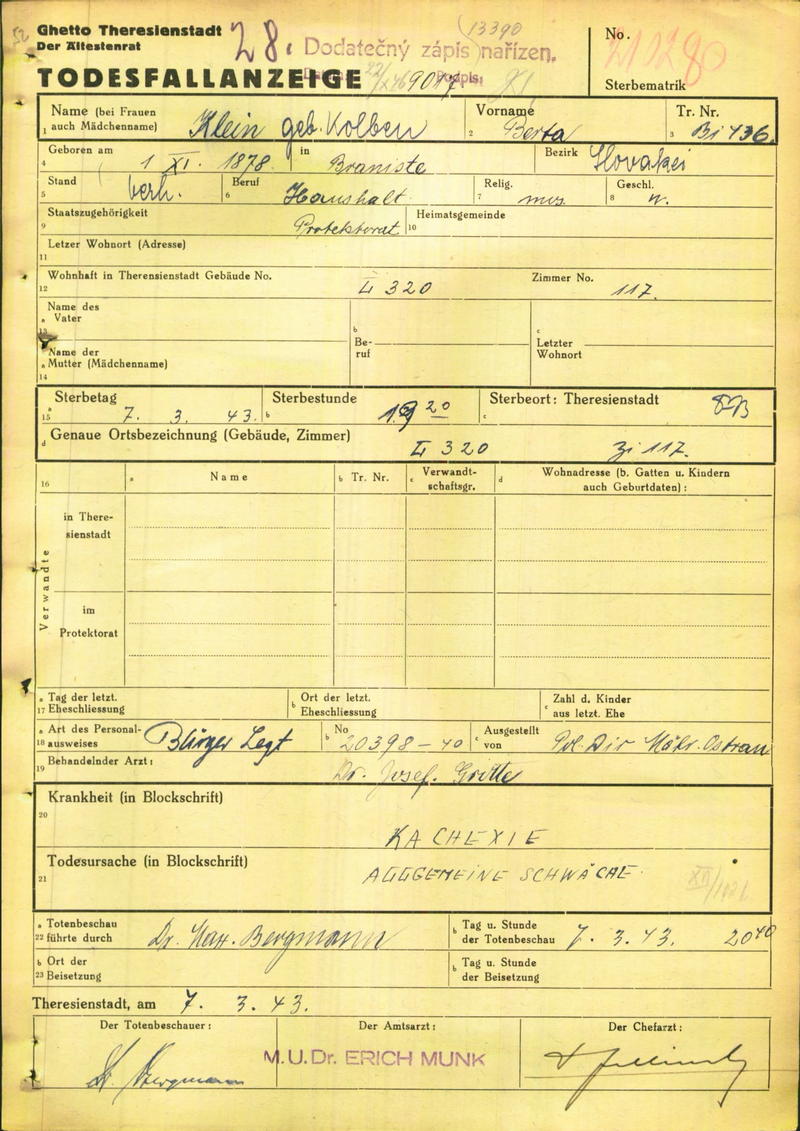 Ghetto Theresienstadt
Der Ältestenrat
28. Dodatečný zápis nařízen.
(13390
TODESFALLANZEIGE
No.
Sterbematrik
Name (bei Frauen
1 auch Mädchenname) Klein geb. Kolben
Vorname
2 Berta
Tr. Nr.
3 Bi 436.
Geboren am
4 1 XI. 1878.
in Braniste
Bezirk Slovakei
Stand
5 verh.
Beruf
6 Haushalt
Relig.
7 mos
Geschl.
8 w.
Staatszugehörigkeit
9 Protektorat
Heimatsgemeinde
10
Letzer Wohnort (Adresse)
11
Wohnhaft in Theresienstadt Gebäude No.
12 L 320
Zimmer No.
117.
Name des
a Vater
13
b
Be-
ruf
c
Letzter
Wohnort
Name der
a Mutter (Mädchenname)
14
Sterbetag
a
15 7. 3. 43.
Sterbestunde
b 19 20
Sterbeort: Theresienstadt
c
d Genaue Ortsbezeichnung (Gebäude, Zimmer)
L 320 Zi 117.
16
a Name
b Tr. Nr.
c Verwandt-
schaftsgr.
d Wohnadresse (b. Gatten u. Kindern
auch Geburtdaten):
Verwandte
in There-
sienstadt
im
Protektorat
a Tag der letzt.
17 Eheschliessung
b Ort der letzt.
Eheschliessung
c Zahl d. Kinder
aus letzt. Ehe
a Art des Personal-
18 ausweises Bürger Legt
b No
20398-40
c Ausgestellt
von Pol. Dir Mähr. Ostrau
19 Behandelnder Arzt:
Dr. Josef. Grotte
Krankheit (in Blockschrift)
20
KACHEXIE
Todesursache (in Blockschrift)
21
ALLGEMEINE SCHWÄCHE
a Totenbeschau
22 führte durch Dr. Max. Bergmann
b Tag u. Stunde
der Totenbeschau 7. 3. 43. 20 40
b Ort der
23 Beisetzung
b Tag u. Stunde
der Beisetzung
Theresienstadt, am 7. 3. 43.
Der Totenbeschauer:
Der Amtsarzt:
Der Chefarzt:
Dr. Bergmann
M.U.Dr. ERICH MUNK